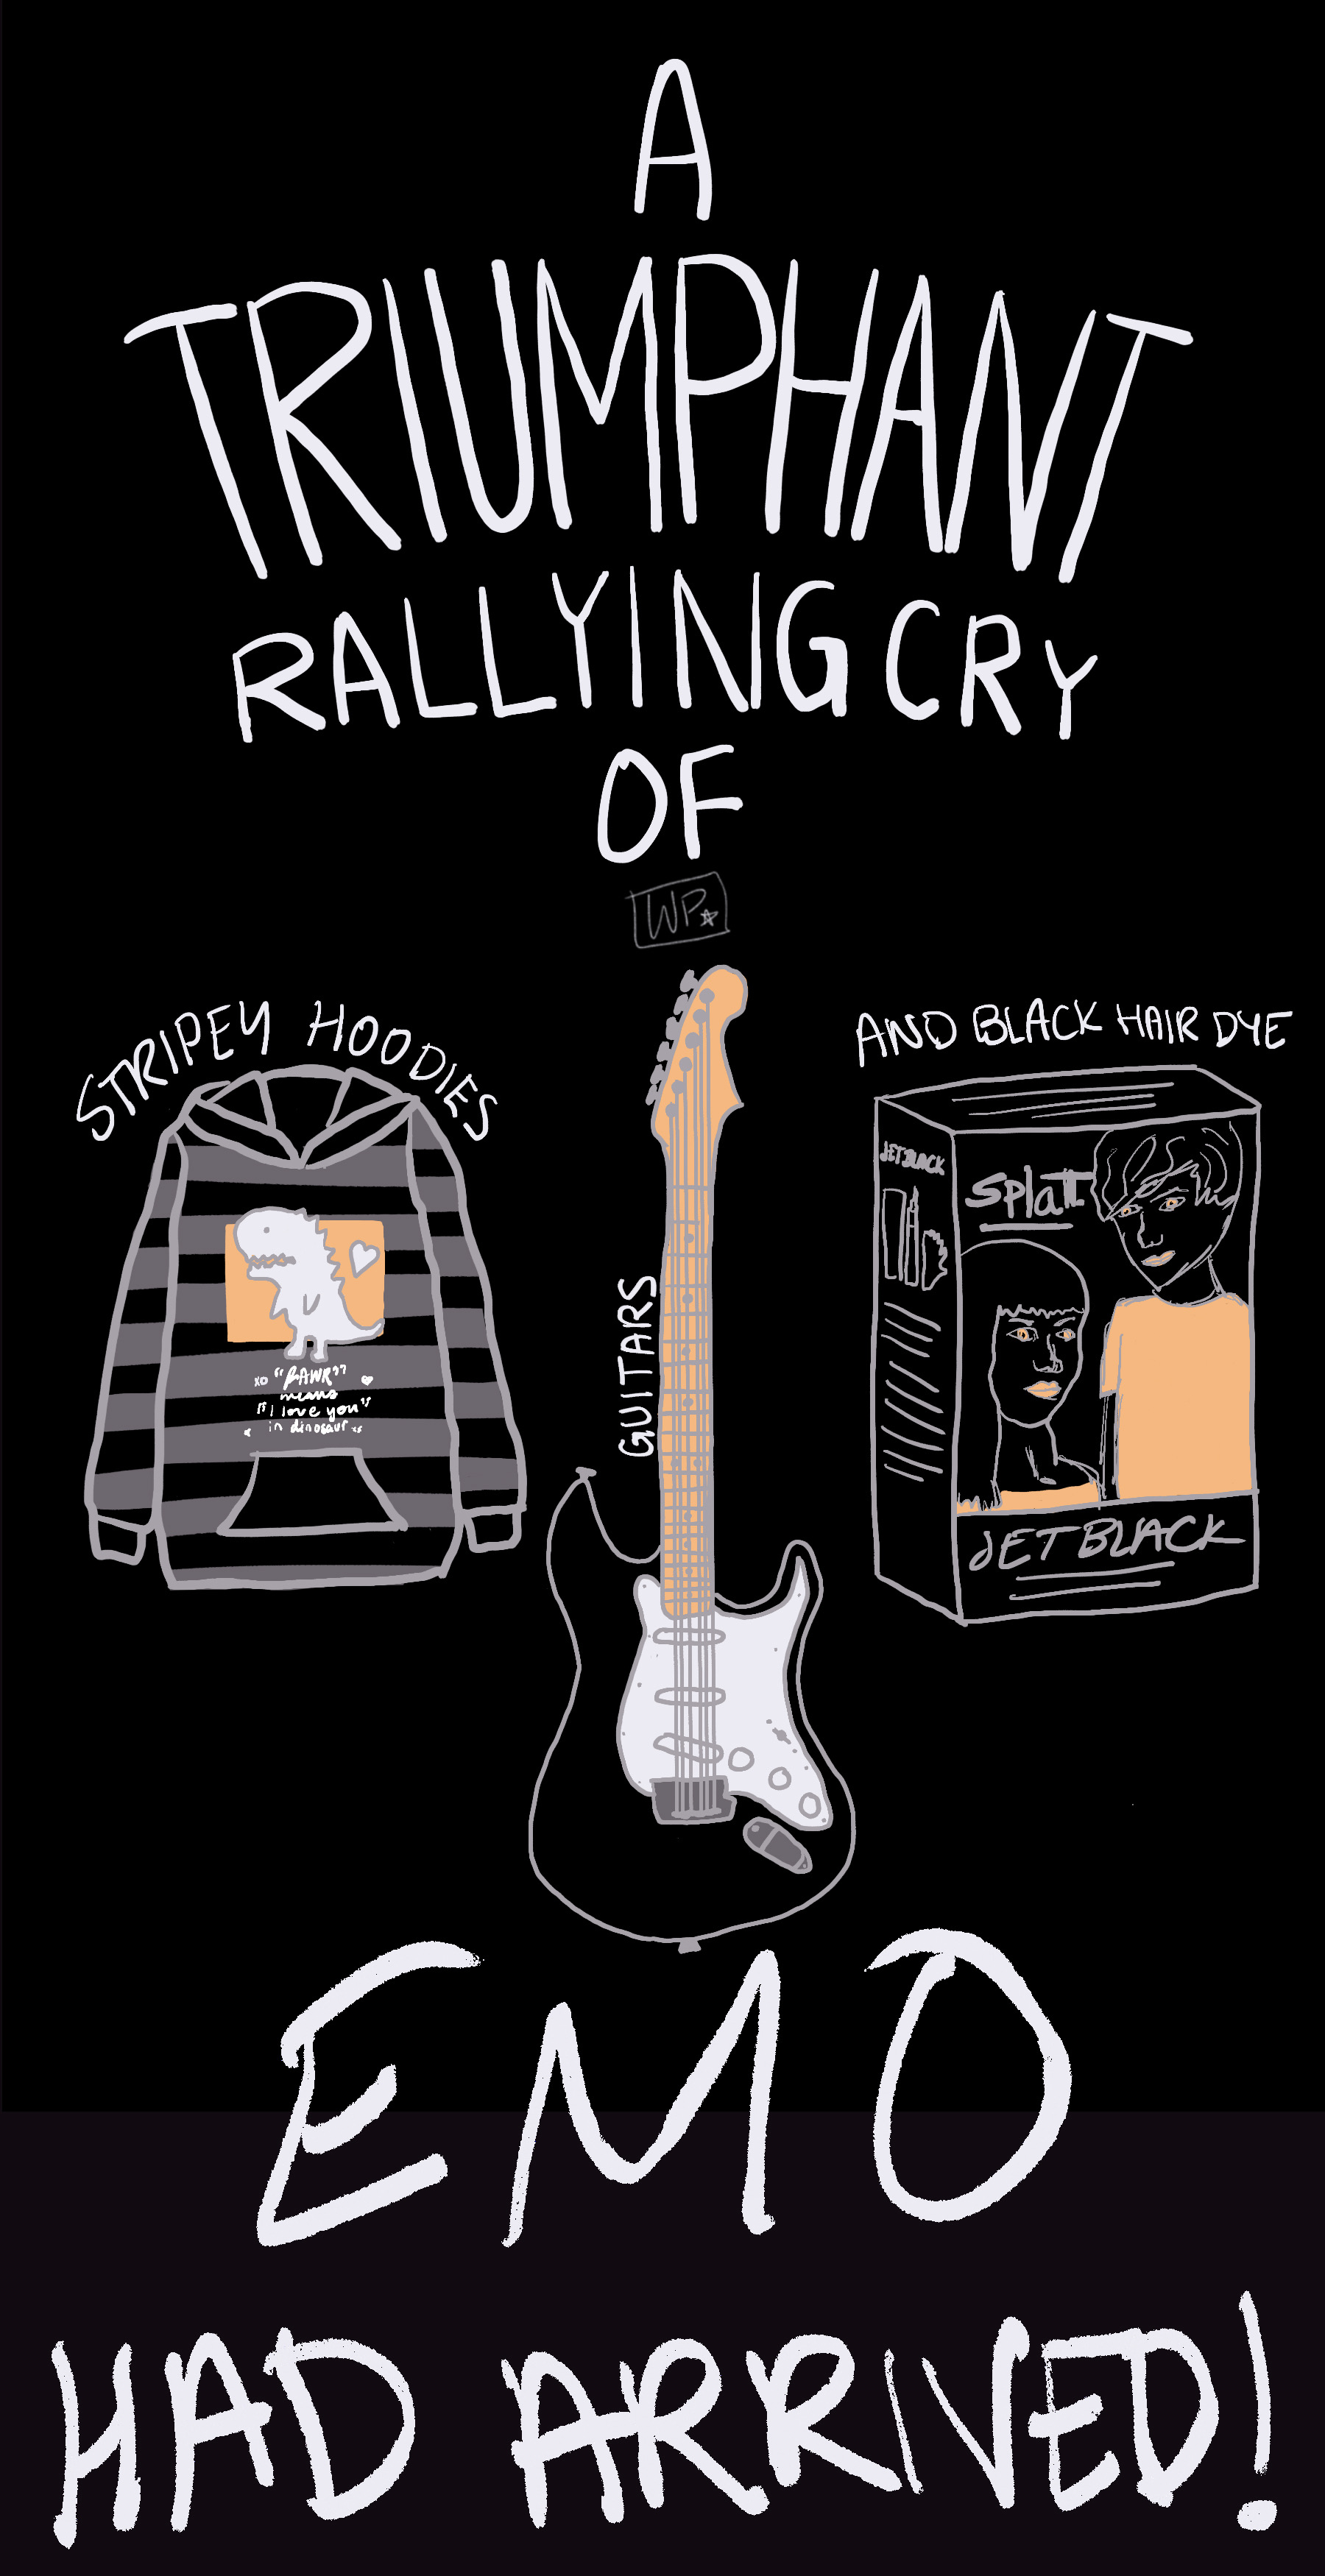 A
TRIUMPHANT
RALLYING CRY
OF
WP
STRIPEY HOODIES
xo "RAWR"
means
"I love you"
in dinosaur xs
GUITARS
AND BLACK HAIR DYE
JET BLACK
Splatt
JET BLACK
EMO
HAD ARRIVED!